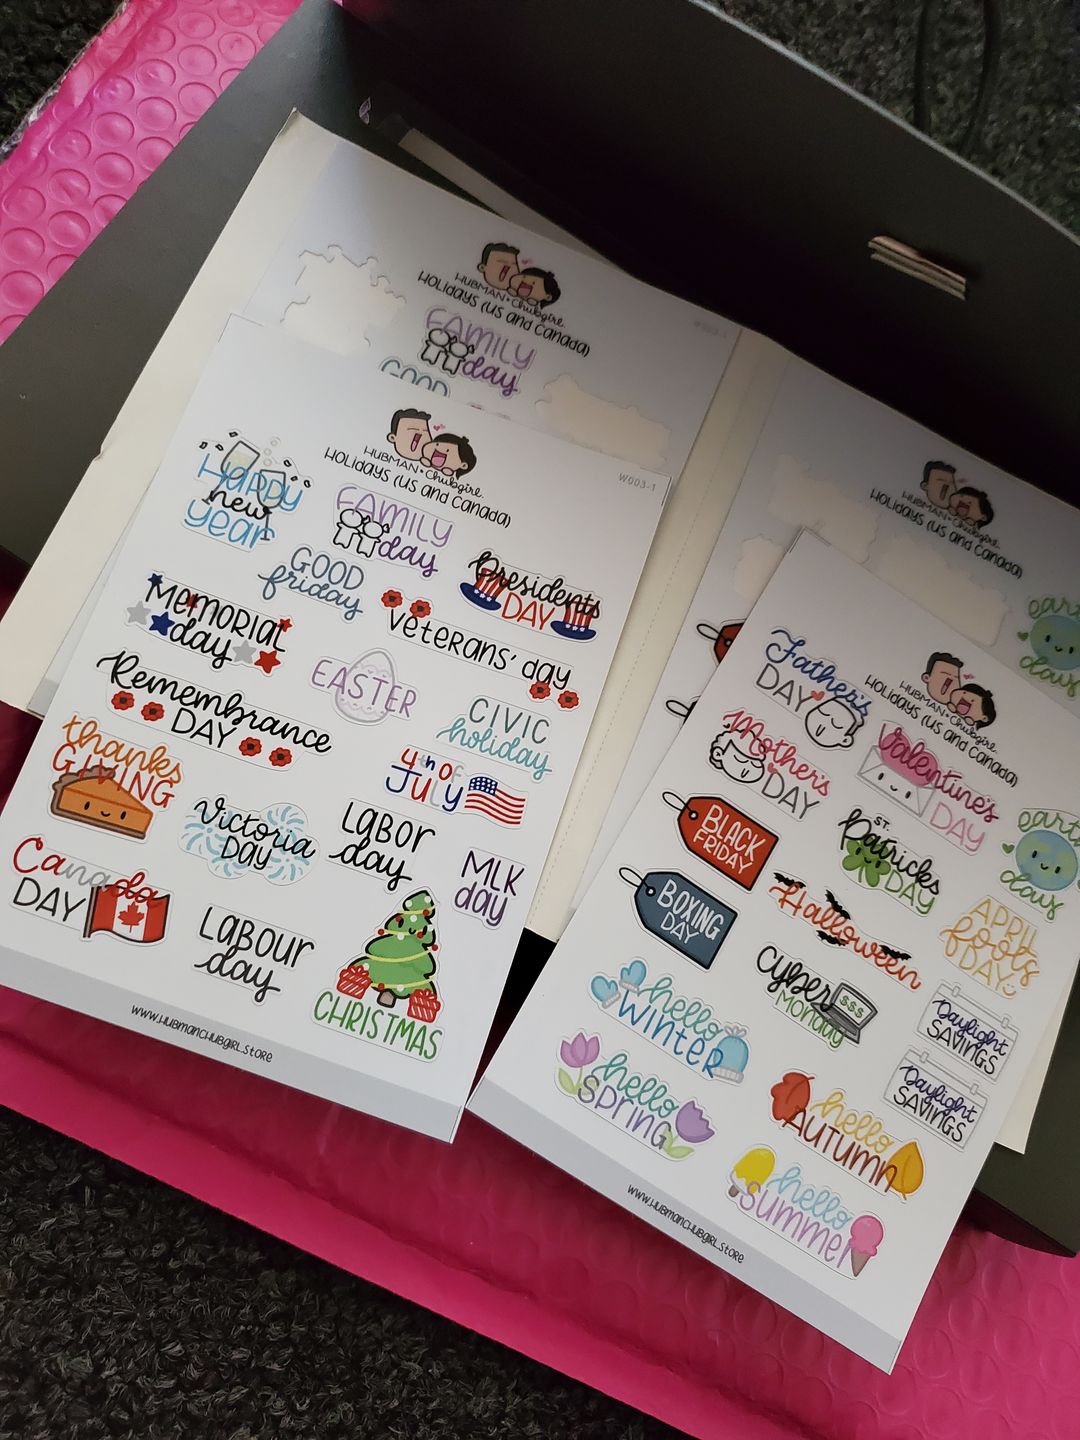 HUBMAN + Chubgirl.
HOLIDAYS (US and Canada)
W003-1
FAMILY
day
GOOD
HUBMAN + Chubgirl.
HOLIDAYS (US and Canada)
W003-1
Happy
new
year
FAMILY
day
GOOD
friday
Presidents
DAY
Memorial
day
Veterans' day
EASTER
Remembrance
DAY
CIVIC
holiday
thanks
GIVING
4th of
July
Victoria
Day
LABOR
day
MLK
day
Canada
DAY
LABOUR
day
CHRISTMAS
www.HUBmanCHUBgirl.store
HUBMAN + Chubgirl.
HOLIDAYS (US and Canada)
earth
day
HUBMAN + Chubgirl.
HOLIDAYS (US and Canada)
Father's
DAY
Mother's
DAY
Valentine's
DAY
BLACK
FRIDAY
ST.
Patricks
DAY
earth
day
BOXING
DAY
Halloween
APRIL
fools
DAY
hello
WINTER
CYBER
MONDAY
$$$
Daylight
SAVINGS
hello
SPRING
Daylight
SAVINGS
hello
AUTUMN
hello
SUMMER
www.HUBmanCHUBgirl.store